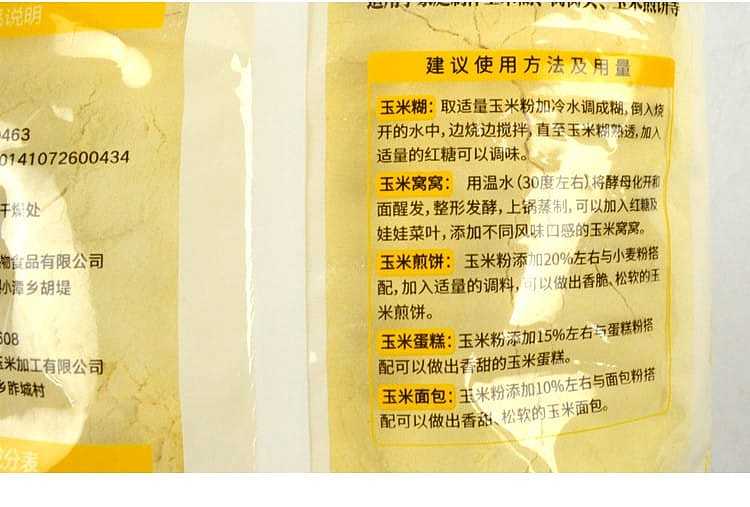 说明
0463
0141072600434
干燥处
物食品有限公司
小潭乡胡堤
608
玉米加工有限公司
乡昨城村
分表
建议使用方法及用量
玉米糊：取适量玉米粉加冷水调成糊，倒入烧
开的水中，边烧边搅拌，直至玉米糊熟透，加入
适量的红糖可以调味。
玉米窝窝：用温水（30度左右）将酵母化开和
面醒发，整形发酵，上锅蒸制，可以加入红糖及
娃娃菜叶，添加不同风味口感的玉米窝窝。
玉米煎饼：玉米粉添加20%左右与小麦粉搭
配，加入适量的调料，可以做出香脆、松软的玉
米煎饼。
玉米蛋糕：玉米粉添加15%左右与蛋糕粉搭
配可以做出香甜的玉米蛋糕。
玉米面包：玉米粉添加10%左右与面包粉搭
配可以做出香甜、松软的玉米面包。